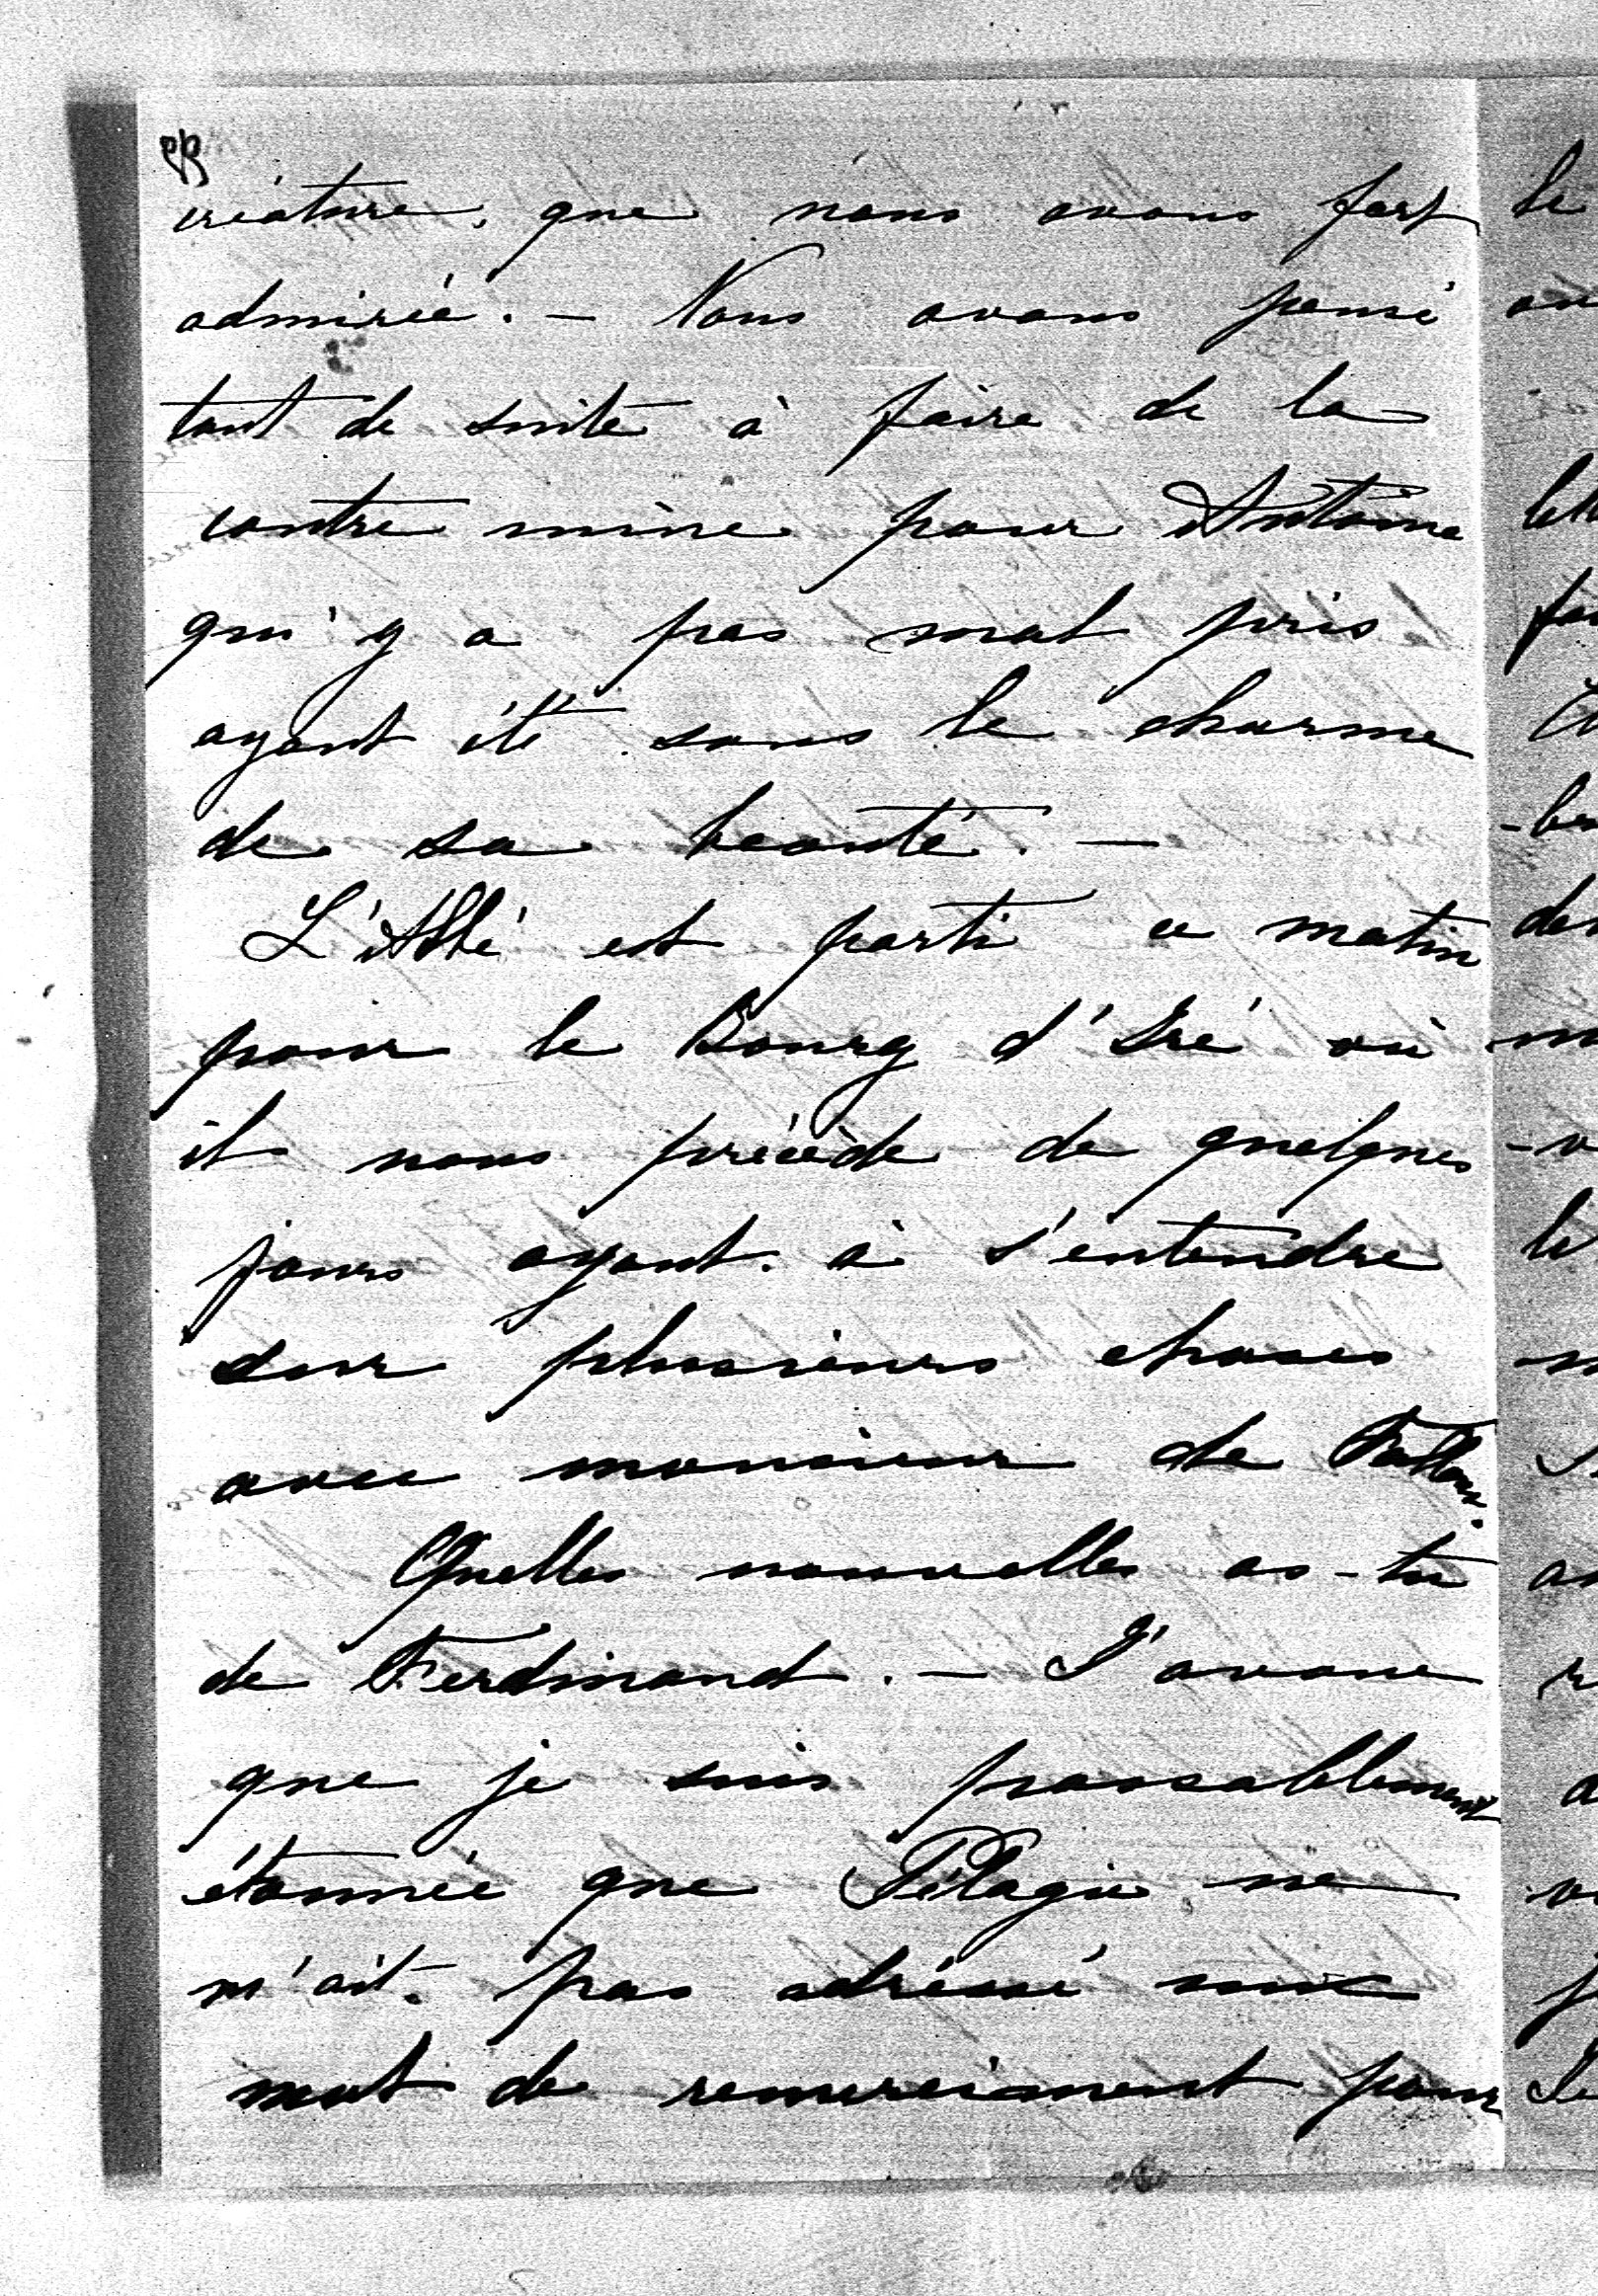 créature, que nous avons fort
admirée. — Nous avons pensé
tout de suite à faire de la
contre mine pour Antoine
qu'y a pas mal pris
ayant été sous le charme
de sa beauté. —
L'Abbé est parti ce matin
pour le Bourg d'Iré où
il nous précède de quelques
jours ayant à s'entendre
sur plusieurs choses
avec monsieur de Falloux.
Quelles nouvelles as-tu
de Ferdinand. — J'avoue
que je suis passablement
étonnée que Pélagie ne
m'ait pas adressé un
mot de remerciement pour